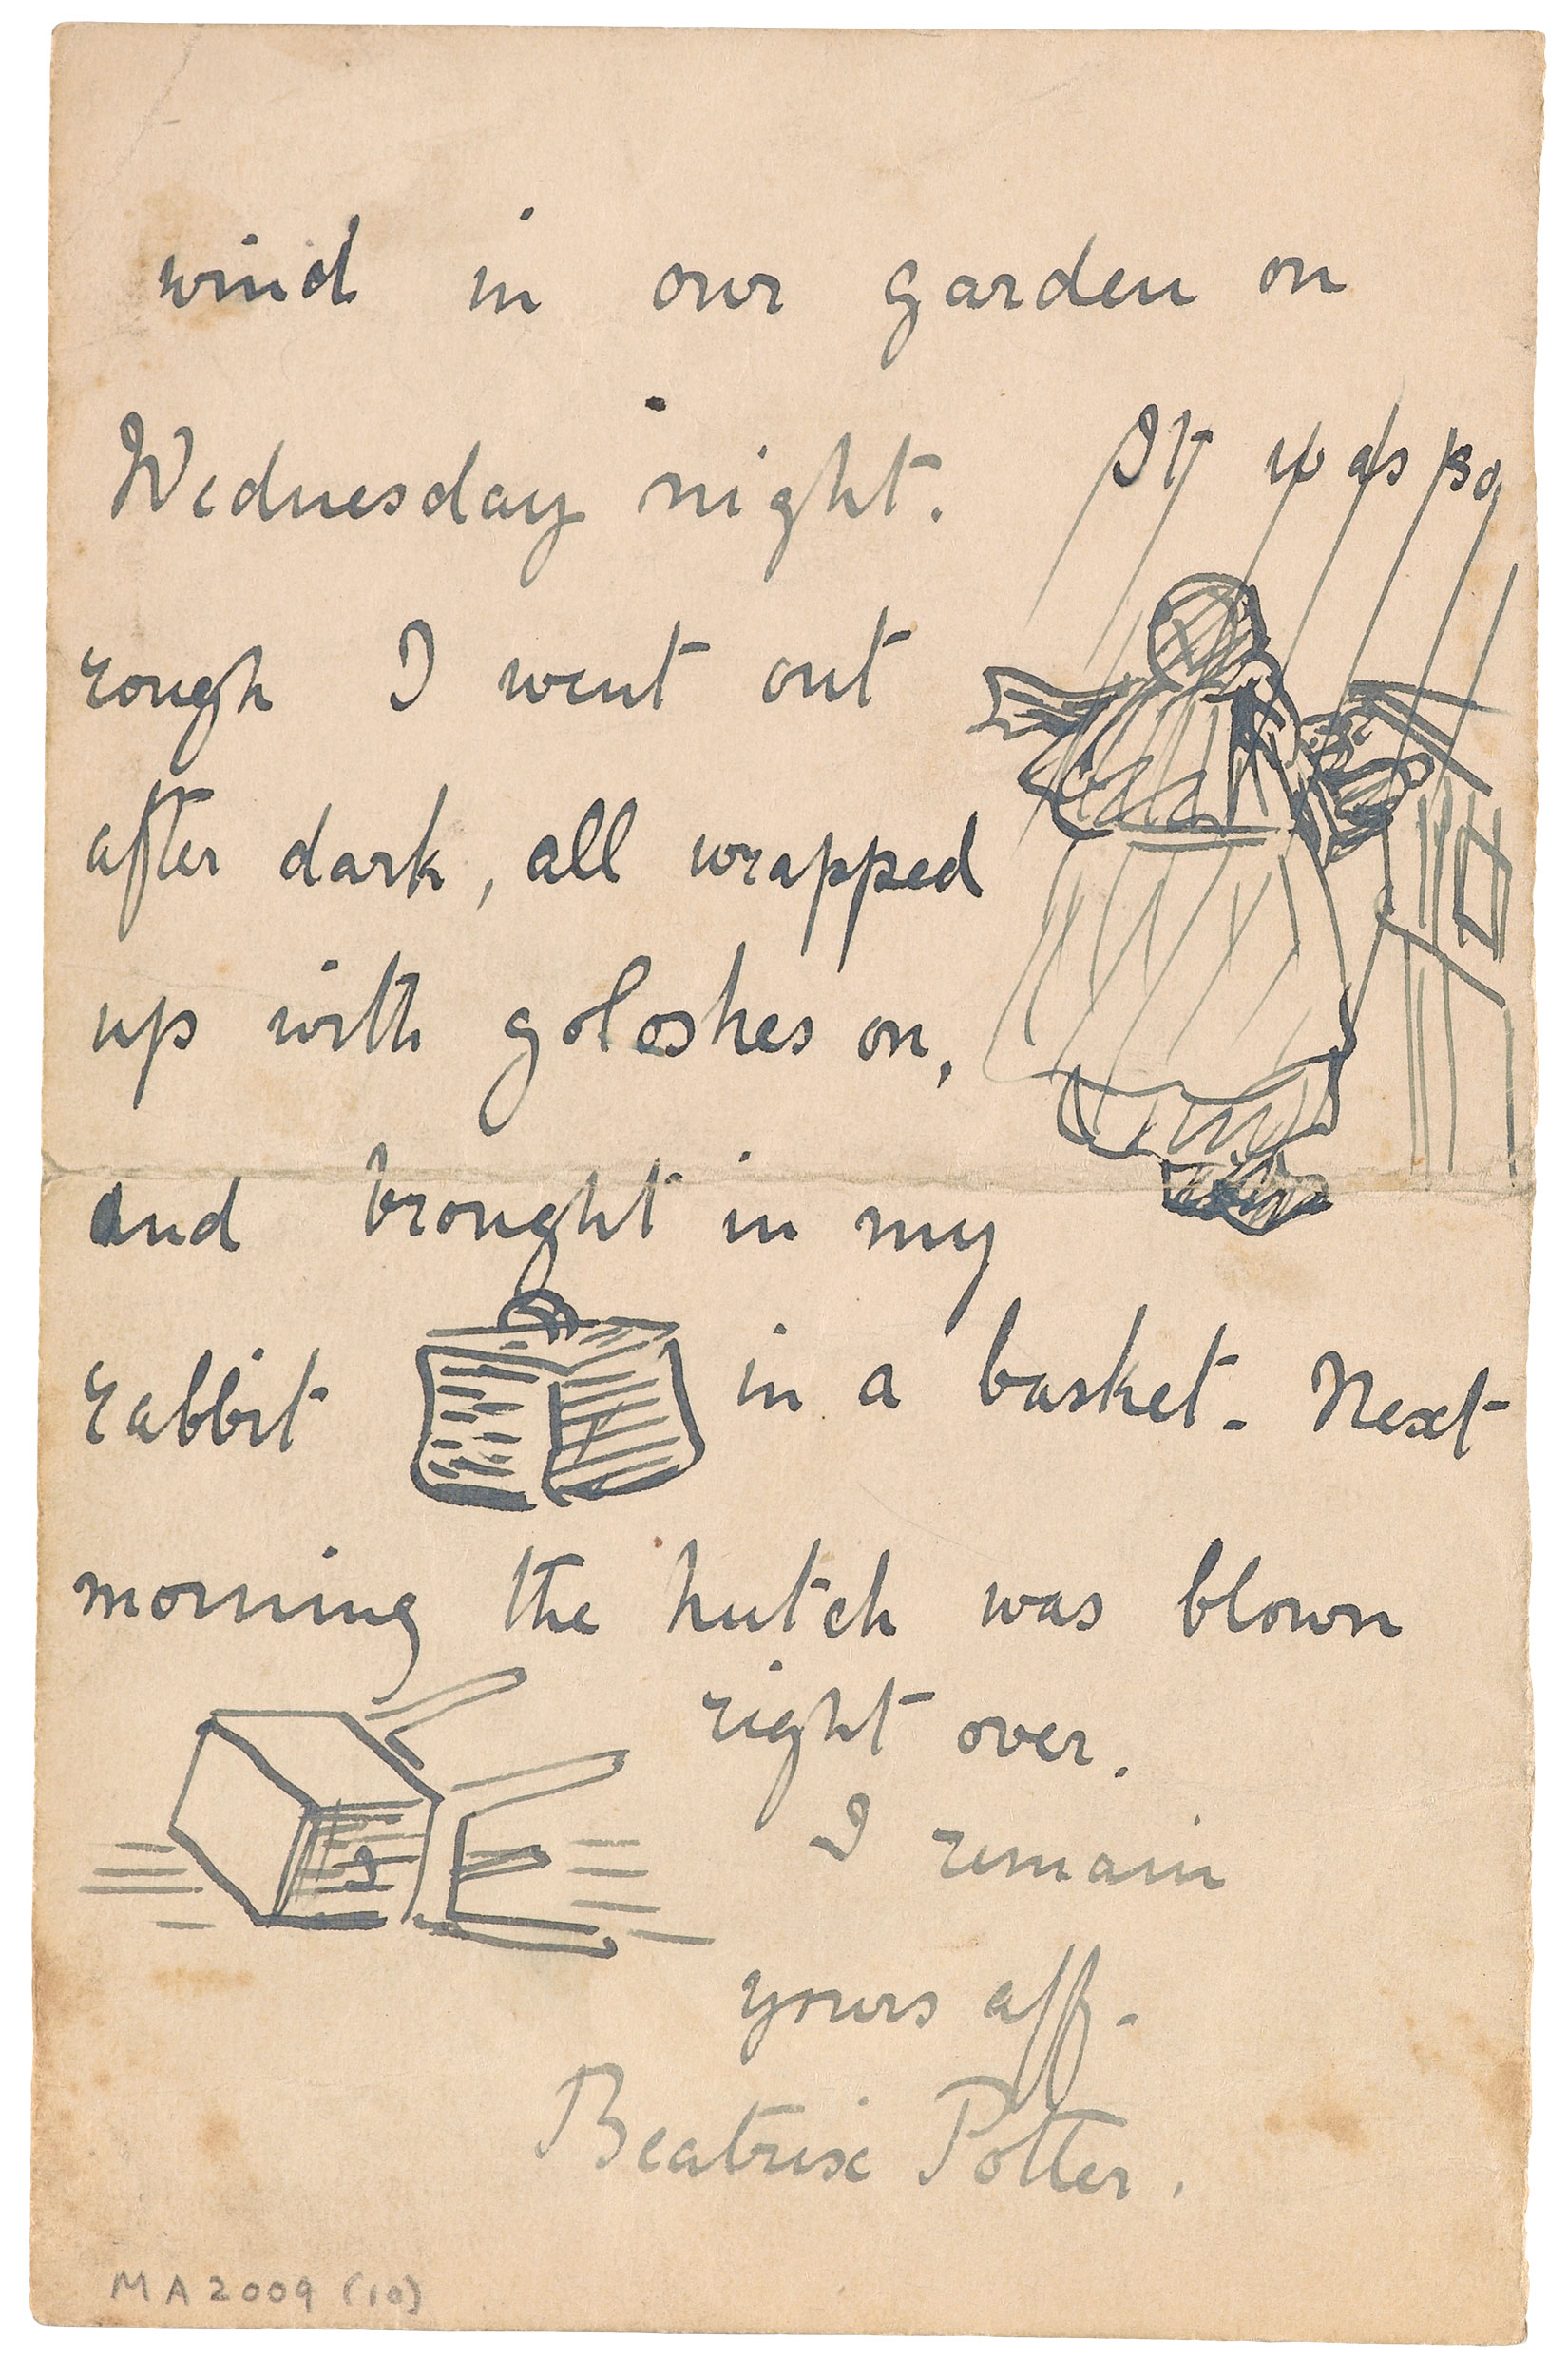 wind in our garden on
Wednesday night. It was so
rough I went out
after dark, all wrapped
up with goloshes on,
and brought in my
rabbit in a basket. Next
morning the hutch was blown
right over.
I remain
yours aff.
Beatrix Potter.
MA 2009 (10)